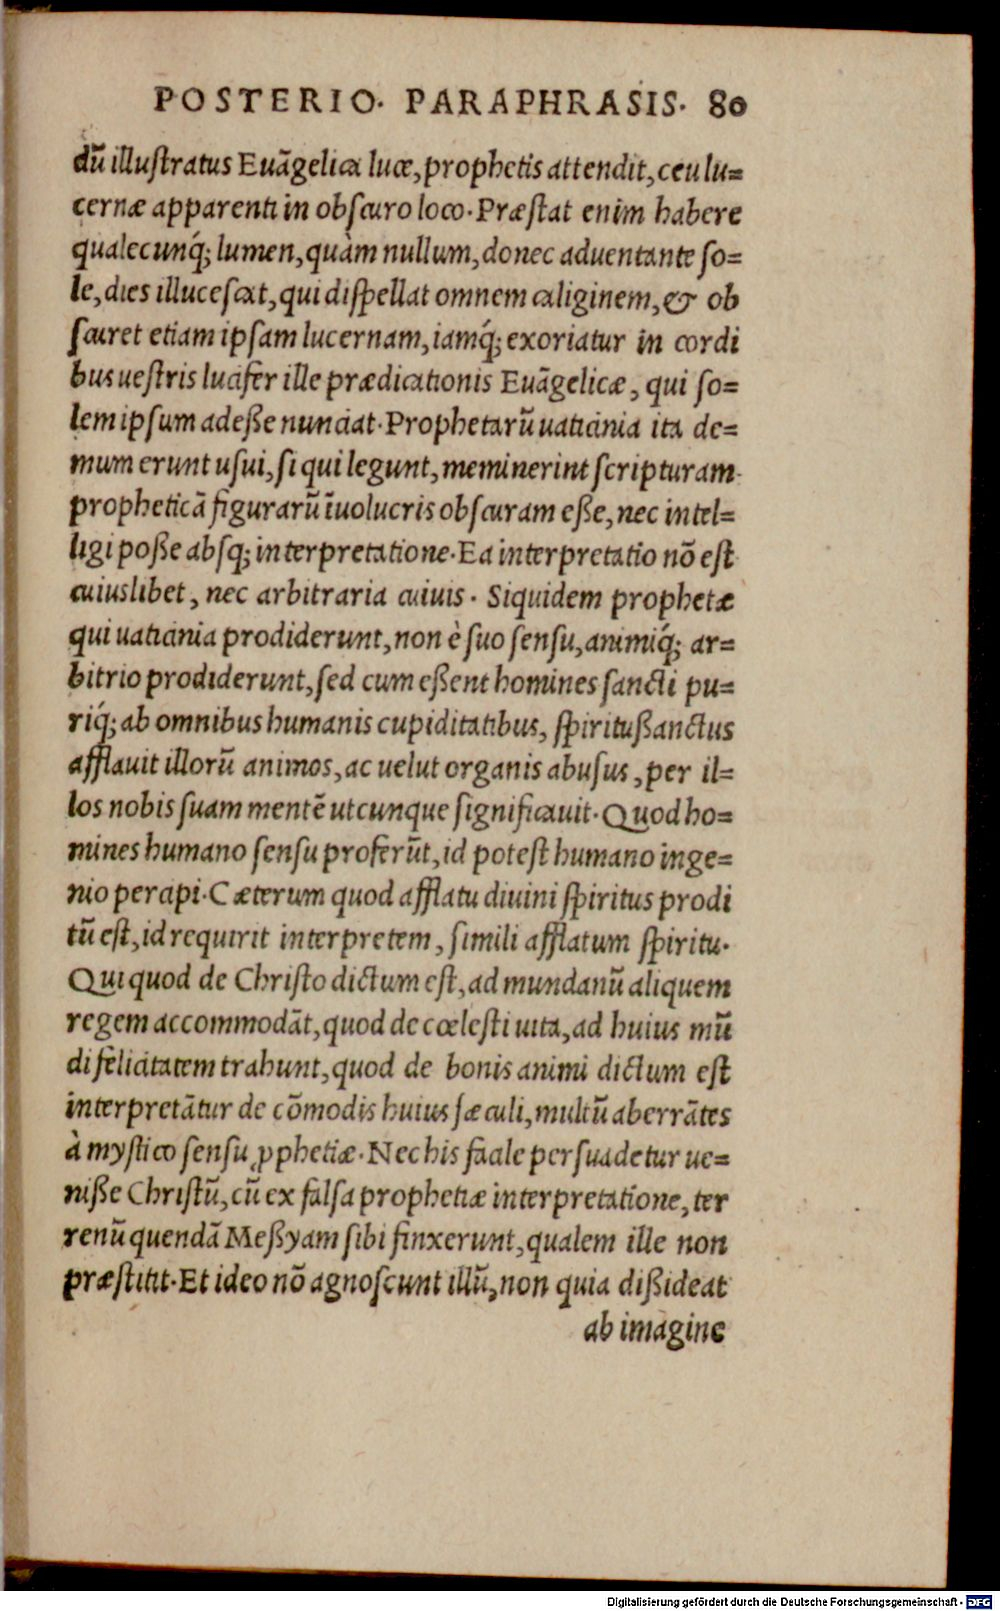 POSTERIO. PARAPHRASIS. 80
dū illuſtratus Euāgelica luce, prophetis attendit, ceu lu=
cernæ apparenti in obſcuro loco. Præſtat enim habere
qualecunq́; lumen, quàm nullum, donec aduentante ſo=
le, dies illuceſcat, qui diſpellat omnem caliginem, & ob
ſcuret etiam ipſam lucernam, iamq́; exoriatur in cordi
bus ueſtris lucifer ille prædicationis Euāgelicæ, qui ſo=
lem ipſum adeße nunciat. Prophetarū uaticinia ita de=
mum erunt uſui, ſi qui legunt, meminerint ſcripturam
propheticā figurarū īuolucris obſcuram eße, nec intel=
ligi poße abſq; interpretatione. Ea interpretatio nō eſt
cuiuslibet, nec arbitraria cuiuis. Siquidem prophetæ
qui uaticinia prodiderunt, non è ſuo ſenſu, animiq́; ar=
bitrio prodiderunt, ſed cum eßent homines ſancti pu=
riq́; ab omnibus humanis cupiditatibus, ſpiritußanctus
afflauit illorū animos, ac uelut organis abuſus, per il=
los nobis ſuam mentē utcunque ſignificauit. Quod ho=
mines humano ſenſu proferūt, id poteſt humano inge=
nio percipi. Cæterum quod afflatu diuini ſpiritus prodi
tū eſt, id requirit interpretem, ſimili afflatum ſpiritu.
Qui quod de Chriſto dictum eſt, ad mundanū aliquem
regem accommodāt, quod de cœleſti uita, ad huius mū
di felicitatem trahunt, quod de bonis animi dictum eſt
interpretātur de cōmodis huius ſæculi, multū aberrātes
à myſtico ſenſu ꝓphetiæ. Nec his facile perſuadetur ue=
niße Chriſtū, cū ex falſa prophetiæ interpretatione, ter
renū quendā Meßyam ſibi finxerunt, qualem ille non
præſtitit. Et ideo nō agnoſcunt illū, non quia dißideat
ab imagine
Digitalisierung gefördert durch die Deutsche Forschungsgemeinschaft - DFG